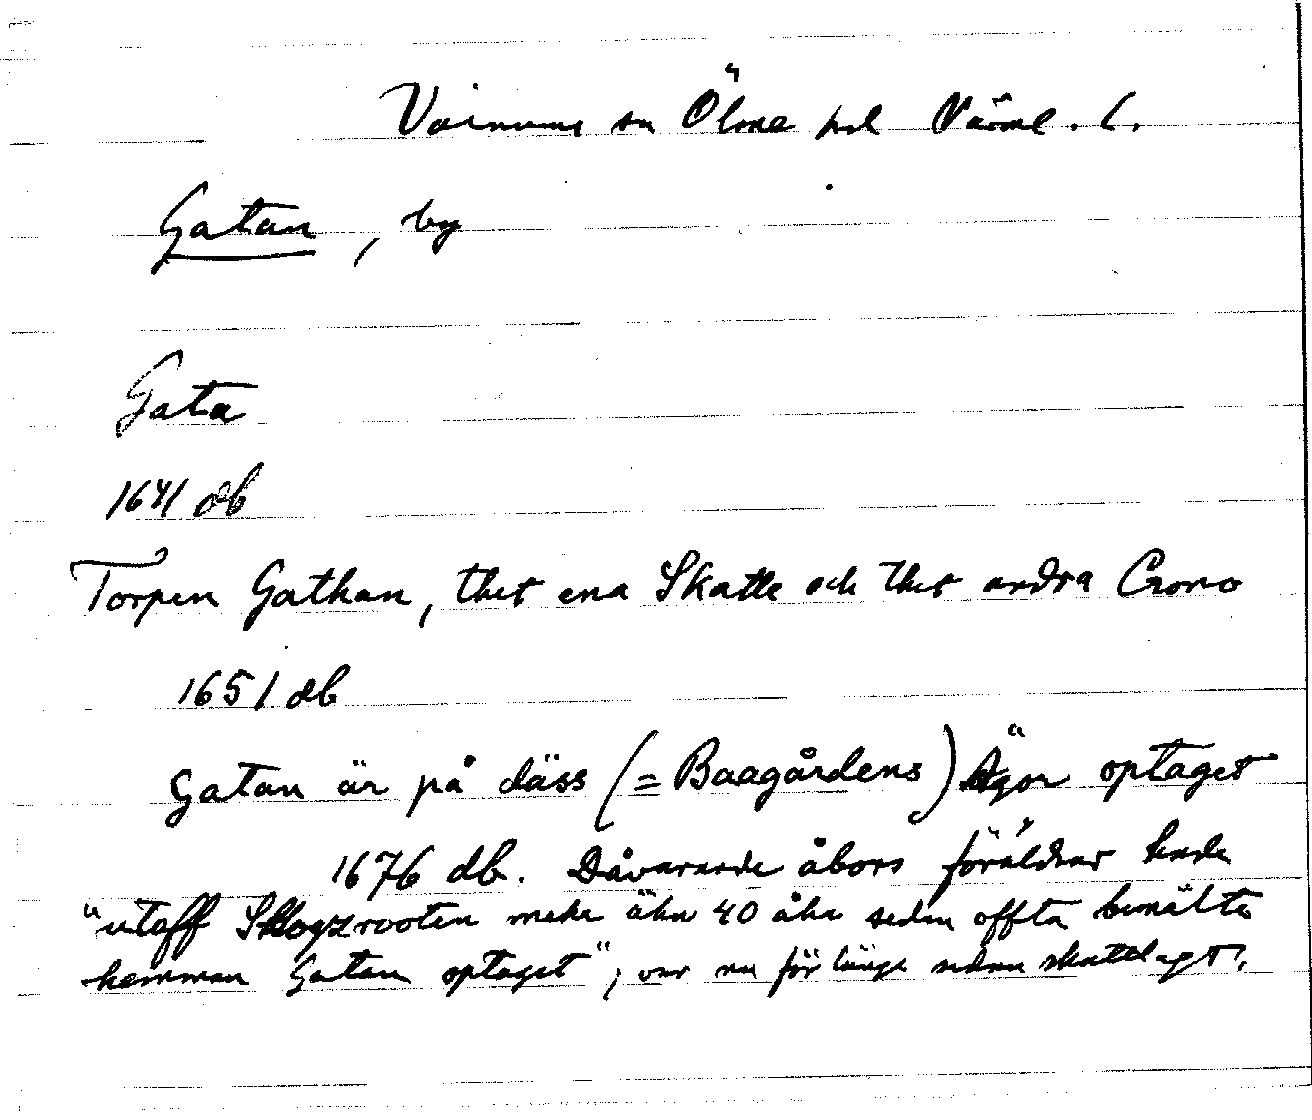 Varnums sn Ölme hd Värml. l.
Gatan, by
Gata
1641 db
Torpen Gathan, thet ena Skatte och thet andra Crono
1651 db
Gatan är på däss (= Baagårdens) Ägor optaget
1676 db. Dåvarande åbors föräldrar hade
"utaff Skogzrooten mehr ähn 40 åhr sedan offta bemälte
hemman Gatan optaget", var nu för länge sedan skattlagt.